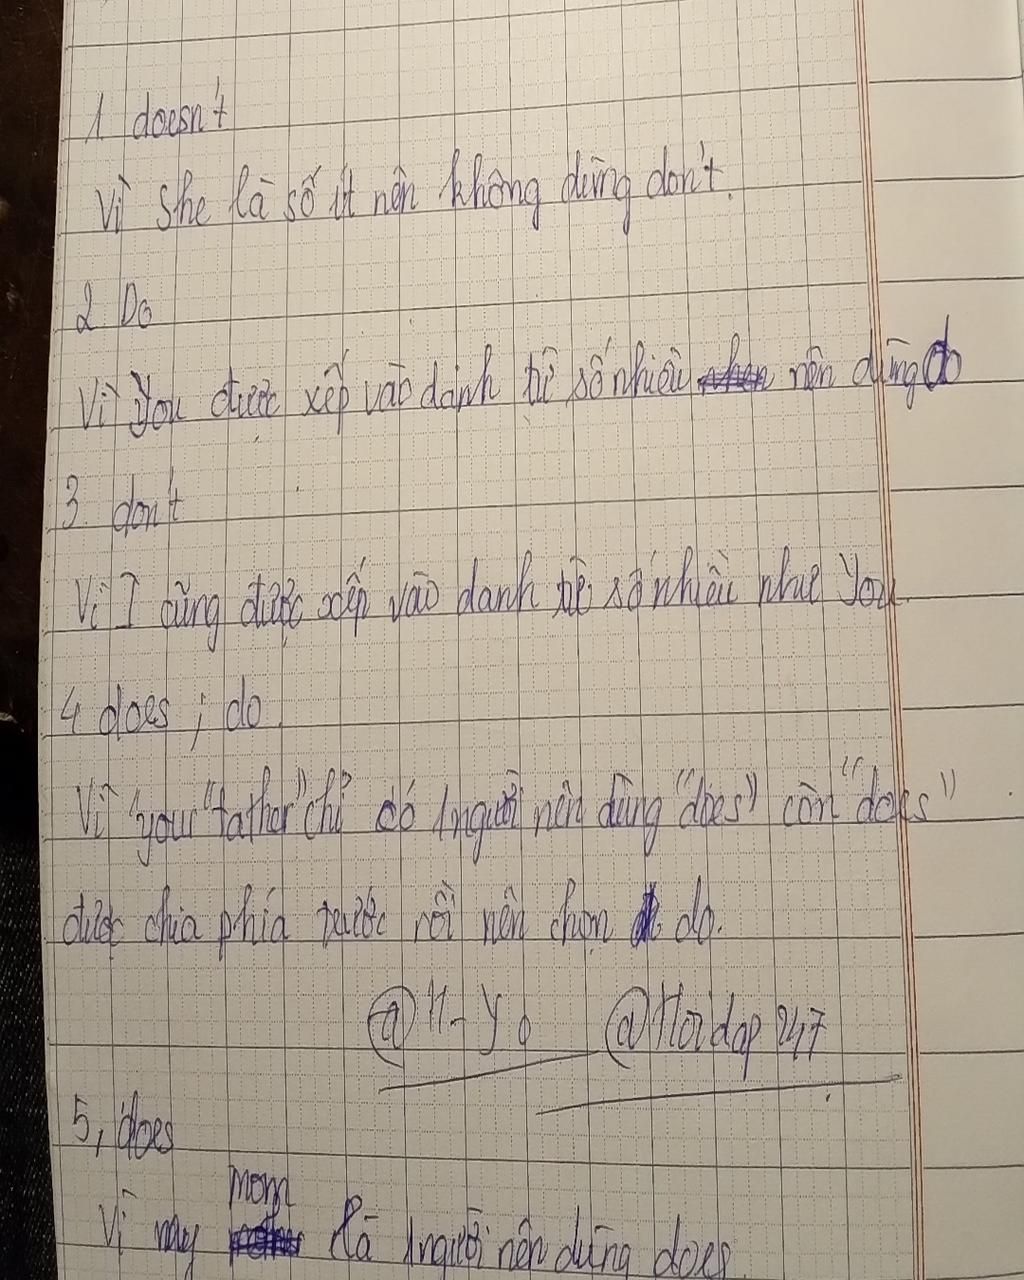 1 doesn't
Vì she là số ít nên không dùng don't.
2 Do
Vì you được xếp vào danh từ số nhiều nên dùng do
3. don't
Vì I cũng được xếp vào danh từ số nhiều như you.
4 does ; do.
Vì "your "father" chỉ có 1 người nên dùng "does" còn "does"
được chia phía trước rồi nên chọn do.
@H-Yo @Hoidap247
5, does
mom
Vì my là 1 người nên dùng does.